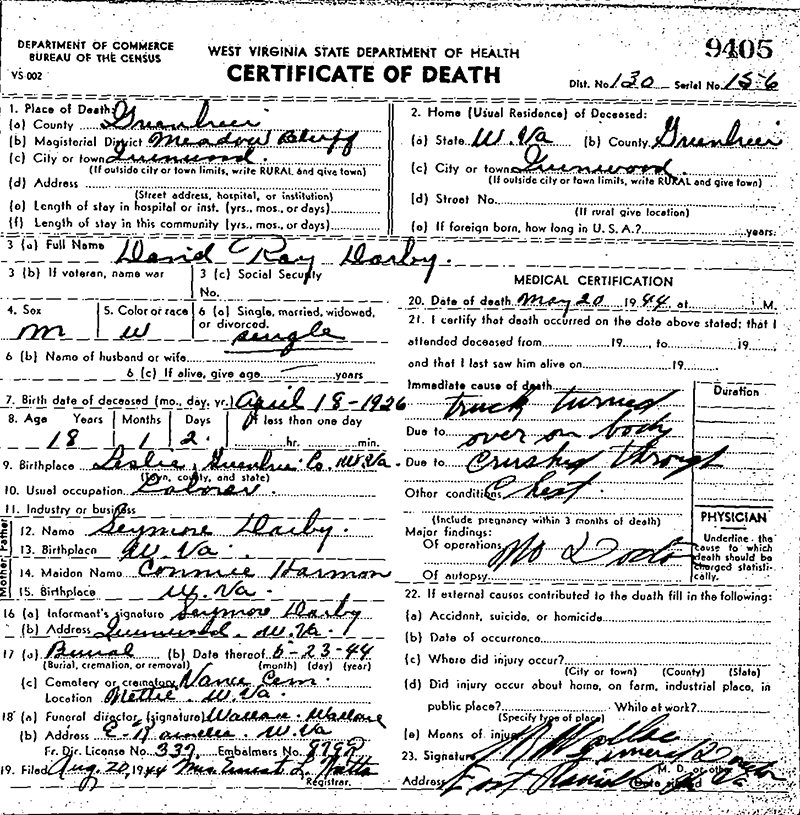 DEPARTMENT OF COMMERCE
BUREAU OF THE CENSUS
VS 002
WEST VIRGINIA STATE DEPARTMENT OF HEALTH
CERTIFICATE OF DEATH
9405
Dist. No. 130 Serial No. 156
1. Place of Death:
(a) County Greenbrier
(b) Magisterial District Meadow Bluff
(c) City or town
(If outside city or town limits, write RURAL and give town)
(d) Address
(Street address, hospital, or institution)
(e) Length of stay in hospital or inst. (yrs., mos., or days)
(f) Length of stay in this community (yrs., mos., or days)
2. Home (Usual Residence) of Deceased:
(a) State W. Va (b) County Greenbrier
(c) City or town
(If outside city or town limits, write RURAL and give town)
(d) Street No.
(If rural give location)
(e) If foreign born, how long in U. S. A.? years.
3 (a) Full Name David Ray Darby.
3 (b) If veteran, name war
3 (c) Social Security
No.
4. Sex M
5. Color or race W
6 (a) Single, married, widowed,
or divorced. single
6 (b) Name of husband or wife
6 (c) If alive, give age — years
7. Birth date of deceased (mo., day, yr.) April 18-1926
8. Age Years Months Days If less than one day
18 1 2 hr. min.
9. Birthplace Leslie, Greenbrier Co. W. Va.
(Town, county, and state)
10. Usual occupation Laborer.
11. Industry or business
Father
12. Name Seymore Darby.
13. Birthplace W. Va.
Mother
14. Maiden Name Connie Harmon
15. Birthplace W. Va.
16 (a) Informant's signature Seymore Darby
(b) Address W. Va.
17 (a) Burial (b) Date thereof 5-23-44
(Burial, cremation, or removal) (month) (day) (year)
(c) Cemetery or crematory Vance Cem.
Location Nettie. W. Va.
18 (a) Funeral director (signature) Wallace Wallace
(b) Address E-Rainelle. W. Va
Fr. Dir. License No. 337 Embalmers No.
19. Filed Aug. 20, 1944 Mrs Ernest L.
Registrar.
MEDICAL CERTIFICATION
20. Date of death May 20 1944 at M.
21. I certify that death occurred on the date above stated; that I
attended deceased from 19 to 19
and that I last saw him alive on 19
Immediate cause of death Duration
truck turned
Due to over on body
Due to crushed through
Other conditions chest.
(Include pregnancy within 3 months of death)
Major findings:
Of operations No
Of autopsy
PHYSICIAN
Underline the
cause to which
death should be
charged statisti-
cally.
22. If external causes contributed to the death fill in the following:
(a) Accident, suicide, or homicide
(b) Date of occurrence
(c) Where did injury occur?
(City or town) (County) (State)
(d) Did injury occur about home, on farm, industrial place, in
public place? While at work?
(Specify type of place)
(e) Means of injury
23. Signature
M. D. or other
Address
Date signed